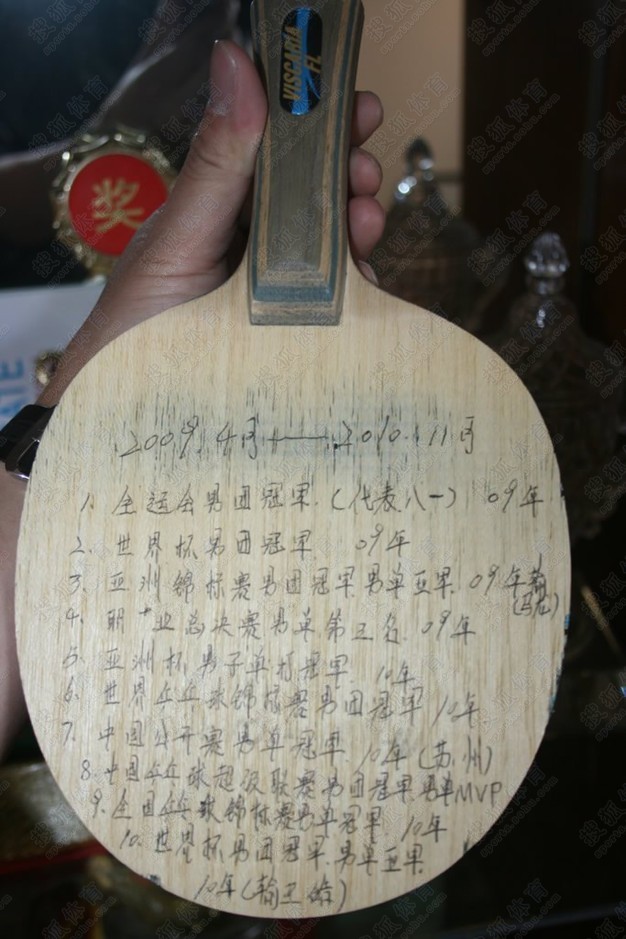 VISCARIA FL
奖
2009.4月——2010.11月
1. 全运会男团冠军.(代表八一) 09年
2. 世界杯男团冠军 09年
3. 亚洲锦标赛男团冠军.男单亚军.09年输(马龙)
4. 职业总决赛男单第三名.09年
5. 亚洲杯男子单打冠军.10年
6. 世界乒乓球锦标赛男团冠军10年
7. 中国公开赛男单冠军.10年(苏州)
8. 中国乒乓球超级联赛男团冠军.男单MVP
9. 全国乒乓球锦标赛男单冠军.10年
10. 世界杯男团冠军.男单亚军.
10年(输王皓)
搜狐体育
sports.sohu.com